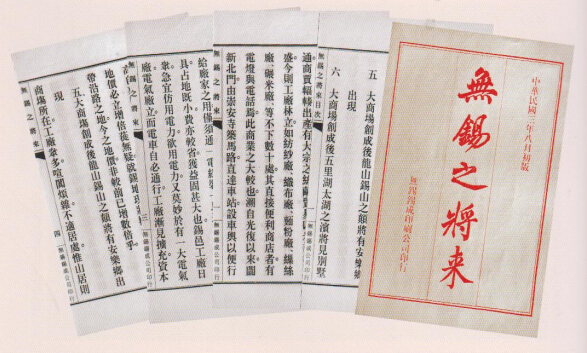 中華民國三年八月初版
無錫之將来
無錫錫成印刷公司印行
五 大商場創成後龍山錫山之顛將有安樂鄉
出現
六 大商場創成後五里湖太湖之濱將見別墅
無錫之將來目次
通商賈輻輳出產有大宗之絲繭
盛今則工廠林立如紡紗廠、織布廠、麵粉廠、繅絲
廠、碾米廠、等不下數十處其直接便利商店者有
電燈與電話焉此商業之大較也溯自光復以來闢
新北門由崇安寺築馬路直達車站設車輿以便行
無錫之將來
給廠家之用僅須通一電
具占地既小費亦較省獲益固甚大也錫邑工廠日
衆急宜仿用電力欲用電力又莫妙於有一大電氣
廠電氣廠立而電車自必通行工廠漸見擴充資本
無錫之將來
三
無錫錫成公司印行
地價必立增倍蓰無疑就錫地
帶沿路之地今之地價非較前已增數倍乎
五 大商場創成後龍山錫山之顛將有安樂鄉出
現
商場所在工廠衆多喧闐煩雜不適居處惟山居則
無錫之將來
四
無錫錫成公司印行